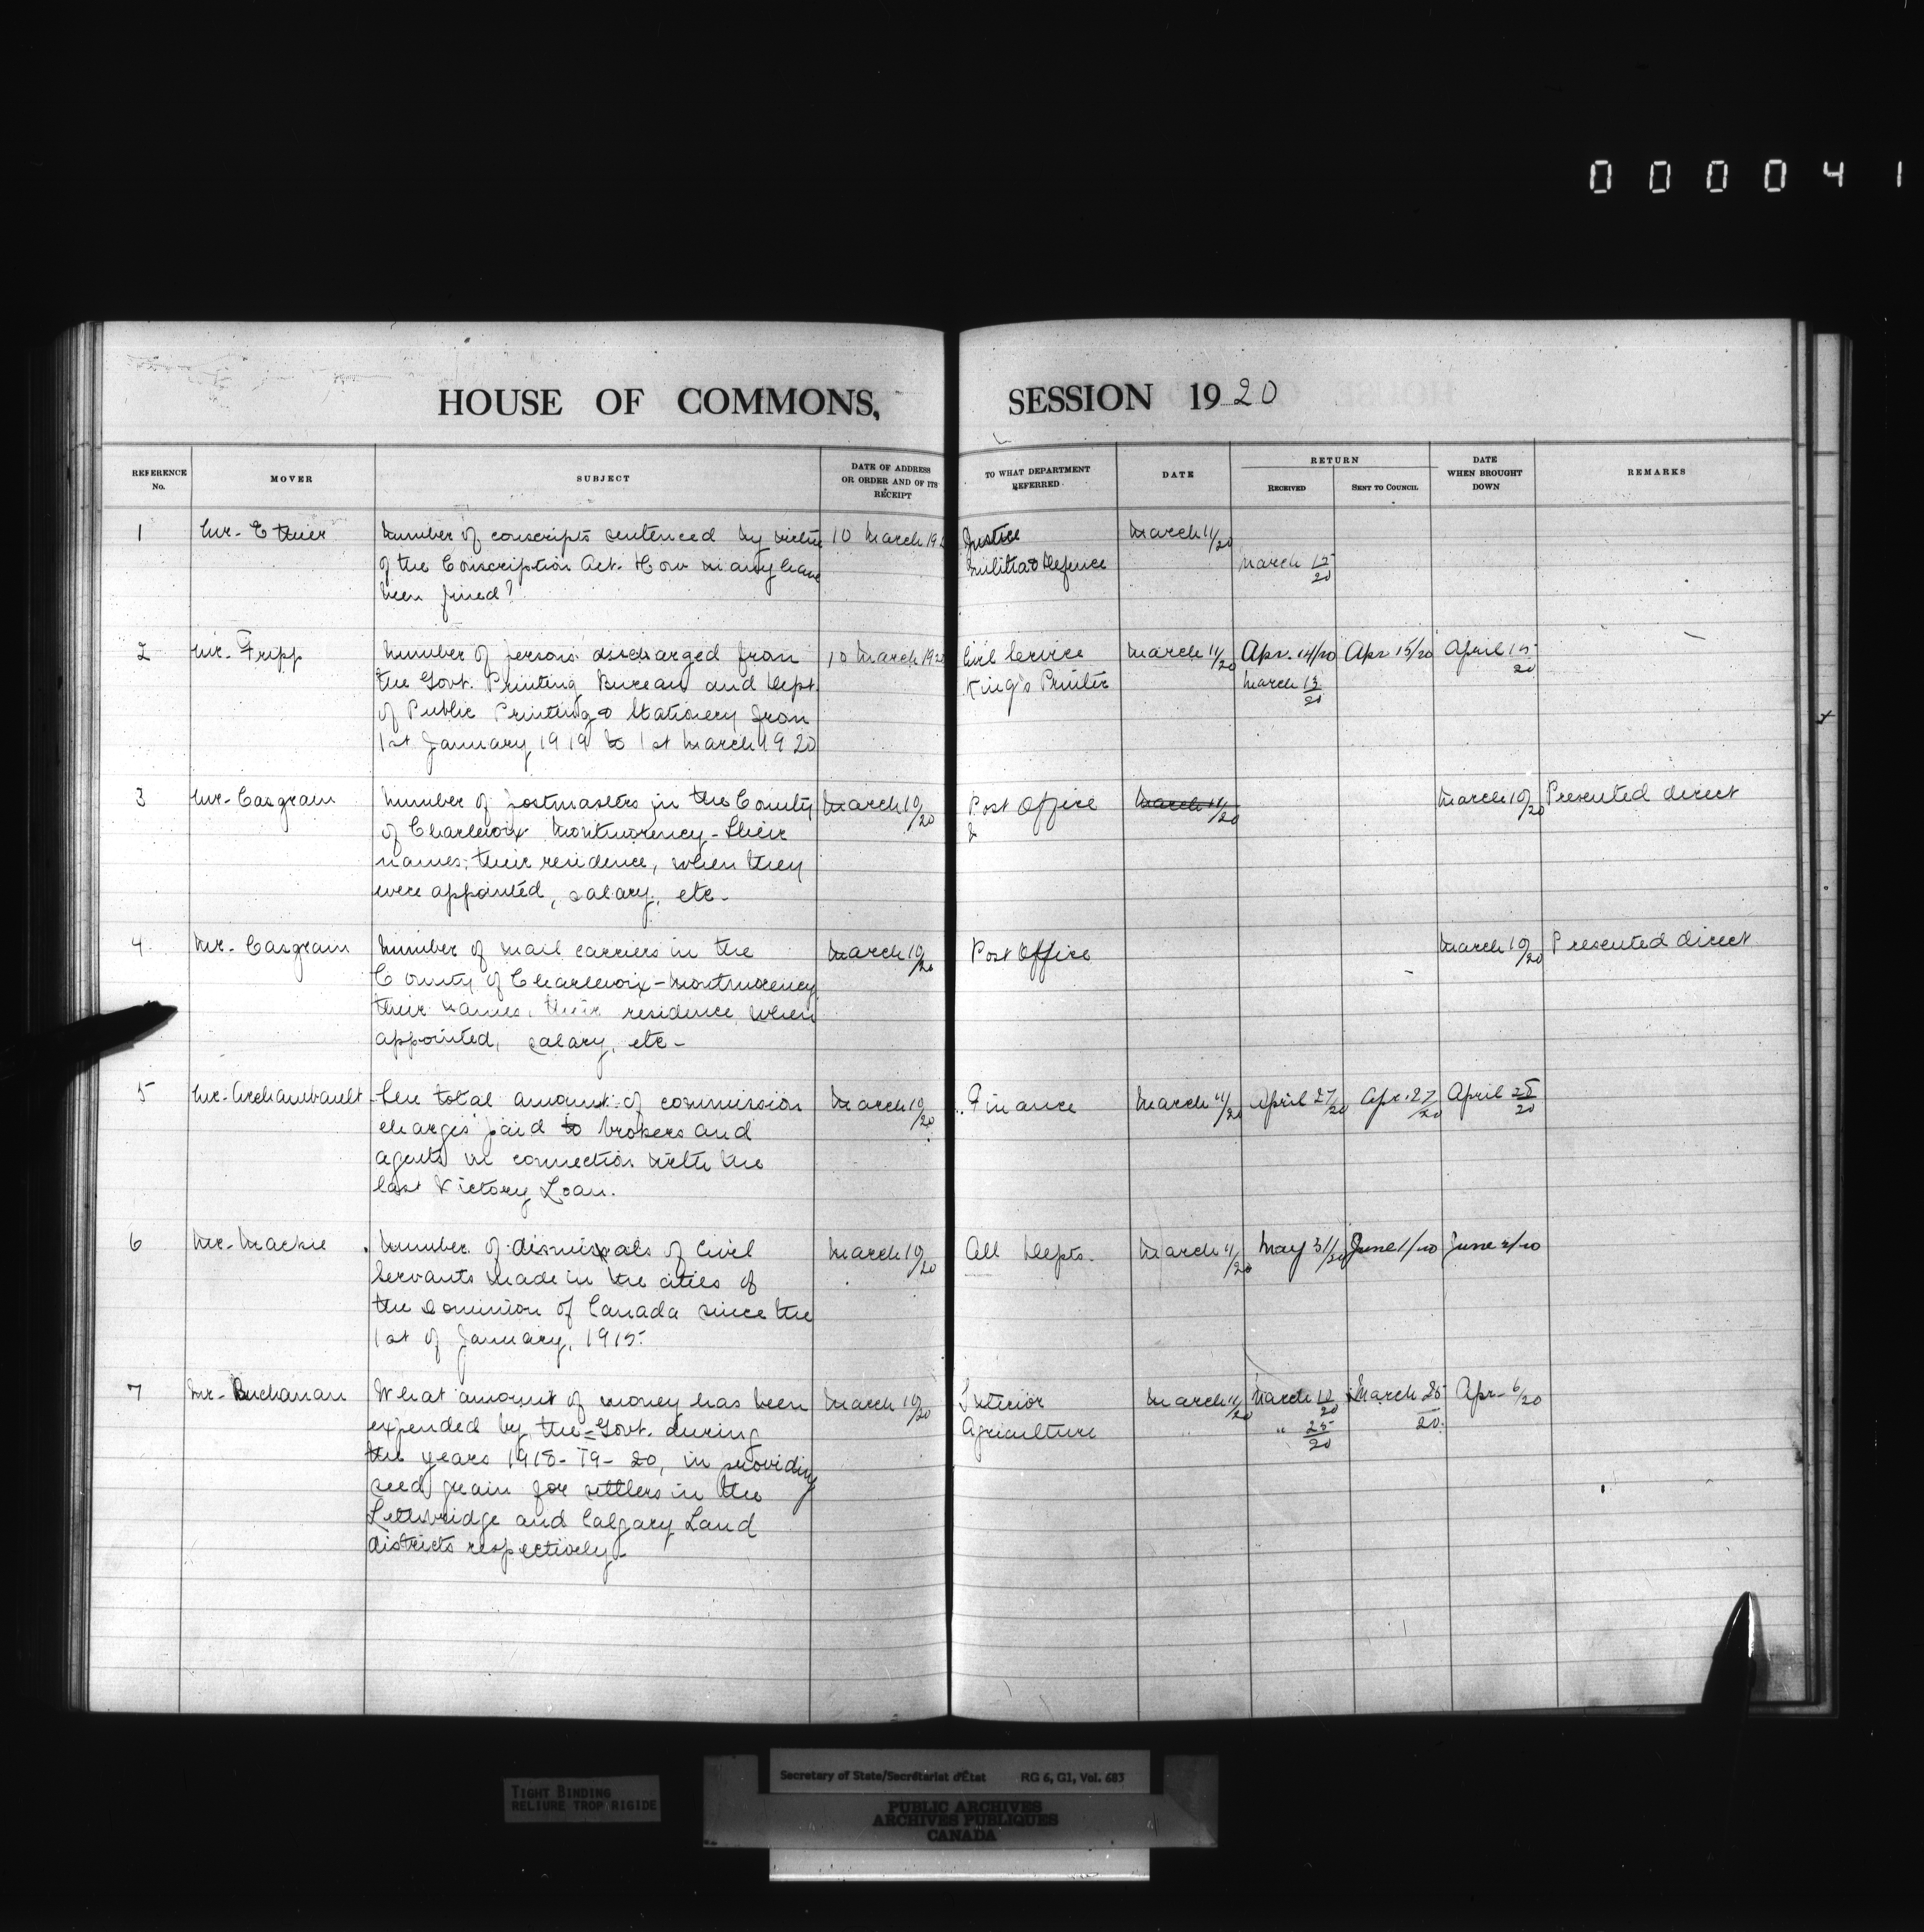 000041
HOUSE OF COMMONS, SESSION 1920
REFERENCE No. MOVER SUBJECT DATE OF ADDRESS OR ORDER AND OF ITS RECEIPT TO WHAT DEPARTMENT REFERRED DATE RETURN RECEIVED SENT TO COUNCIL DATE WHEN BROUGHT DOWN REMARKS
1 Mr. Ethier Number of conscripts sentenced by virtue 10 March 19 Justice March 11/20
of the Conscription Act. How many have Militia & Defence March
been fined?
2 Mr. Fripp Number of persons discharged from 10 March 1920 Civil Service March 11/20 Apr. 14/20 Apr 15/20 April 15/20
the Govt. Printing Bureau and Dept. King's Printer March 13/20
of Public Printing & Stationery from
1st January 1919 to 1st March 1920
3 Mr. Casgrain Number of postmasters in the County March 10/20 Post Office March 11/20 March 10/20 Presented direct
of Charlevoix Montmorency - their &
names, their residence, when they
were appointed, salary, etc.
4 Mr. Casgrain Number of mail carriers in the March 10/20 Post Office March 10/20 Presented direct
County of Charlevoix-Montmorency
their names, their residence, when
appointed, salary, etc-
5 Mr. Archambault The total amount of commission March 10/20 Finance March 11/20 April 27/20 Apr. 27/20 April 28/20
charges paid to brokers and
agents in connection with the
last Victory Loan.
6 Mr. Mackie Number of dismissals of Civil March 10/20 All Depts. March 11/20 May 31/20 June 1/20 June 2/20
Servants made in the cities of
the Dominion of Canada since the
1st of January, 1915.
7 Mr. Buchanan What amount of money has been March 10/20 Interior March 11/20 March /20 March 25/20 Apr. 6/20
expended by the Govt. during Agriculture " " 25/20
the years 1918-19-20, in providing
seed grain for settlers in the
Lethbridge and Calgary Land
districts respectively.
TIGHT BINDING
RELIURE TROP RIGIDE
Secretary of State/Secrétariat d'État RG 6, G1, Vol. 683
PUBLIC ARCHIVES
ARCHIVES PUBLIQUES
CANADA